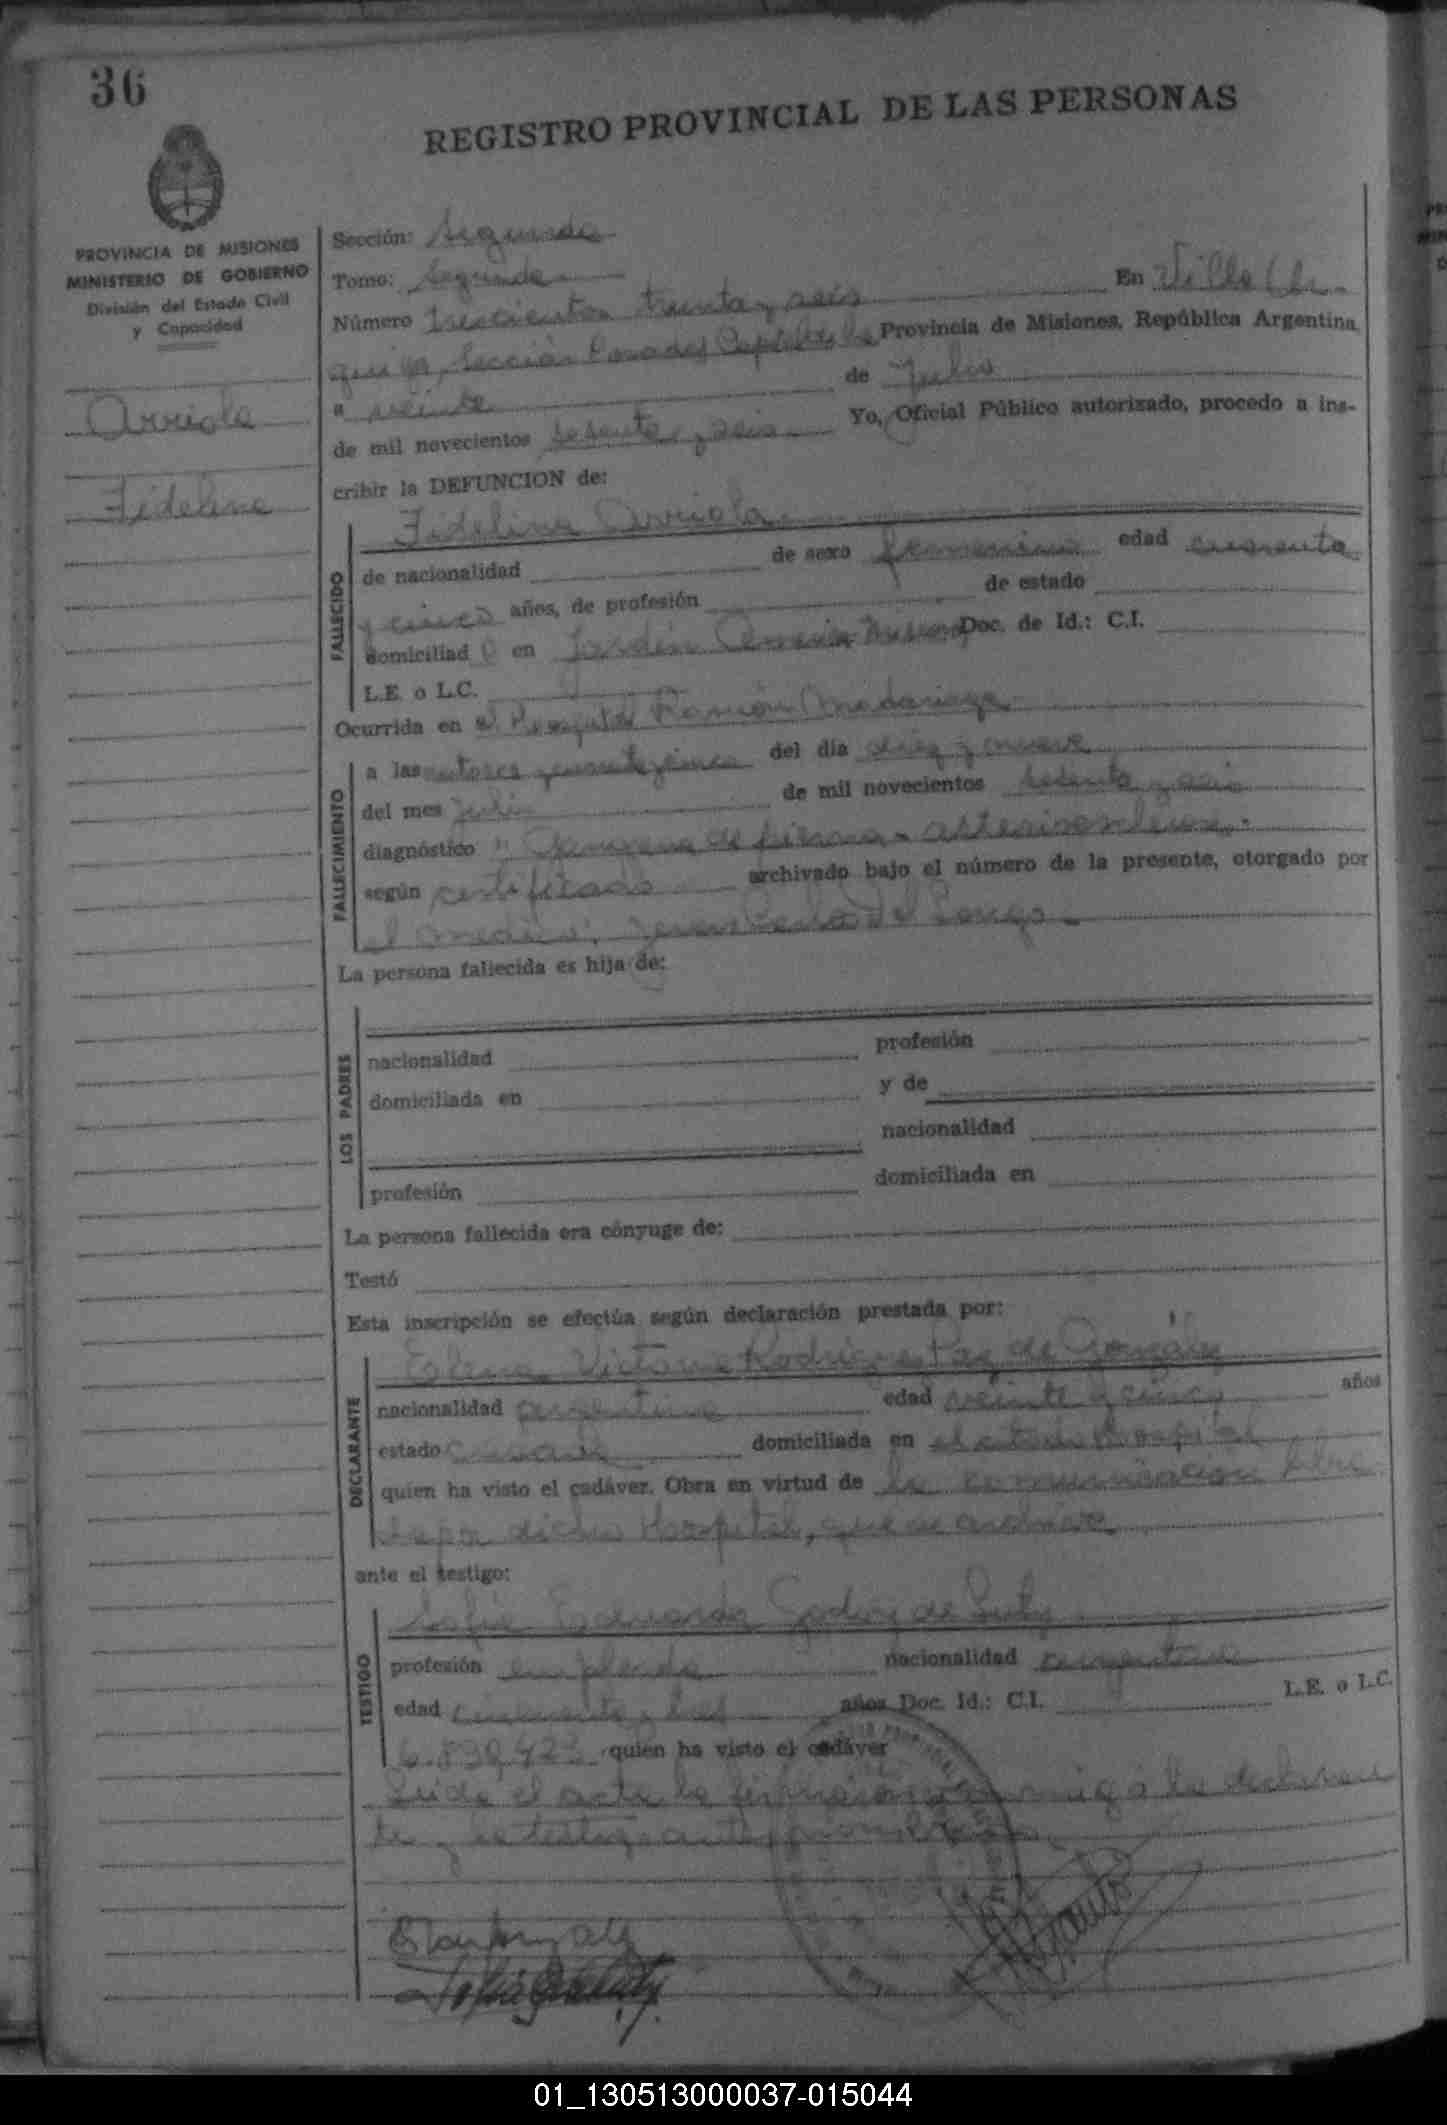 36
REGISTRO PROVINCIAL DE LAS PERSONAS
PROVINCIA DE MISIONES
MINISTERIO DE GOBIERNO
División del Estado Civil
y Capacidad
Arriola
Fidelina
Sección: Segunda
Tomo: Segundo
Número trescientos treinta y seis En Villa
Sección Posadas Provincia de Misiones, República Argentina,
a veinte de Julio
de mil novecientos sesenta y seis Yo, Oficial Público autorizado, procedo a ins-
cribir la DEFUNCION de:
FALLECIDO
Fidelina Arriola
de nacionalidad de sexo femenino edad cuarenta
y cinco años, de profesión de estado
domiciliad a en Jardín América Misiones Doc. de Id.: C.I.
L.E. o L.C.
Ocurrida en el Hospital Ramón Madariaga
FALLECIMIENTO
a las catorce y cuarenta y cinco del día diez y nueve
del mes julio de mil novecientos sesenta y seis
diagnóstico " Gangrena de pierna -
según certificado archivado bajo el número de la presente, otorgado por
el médico:
La persona fallecida es hija de:
LOS PADRES
nacionalidad profesión
domiciliada en y de
nacionalidad
profesión domiciliada en
La persona fallecida era cónyuge de:
Testó
Esta inscripción se efectúa según declaración prestada por:
DECLARANTE
Elena Victoria Rodríguez Paz de González
nacionalidad argentina edad veinte y cinco años
estado casada domiciliada en el citado Hospital
quien ha visto el cadáver. Obra en virtud de la comunicación
dicho Hospital, que se archiva
ante el testigo:
TESTIGO
Sofía Eduarda Godoy de
profesión empleada nacionalidad argentina
edad cincuenta y años Doc. Id.: C.I. L.E. o L.C.
quien ha visto el cadáver
Leída el acta la la declaran
te y la testigo
01_130513000037-015044